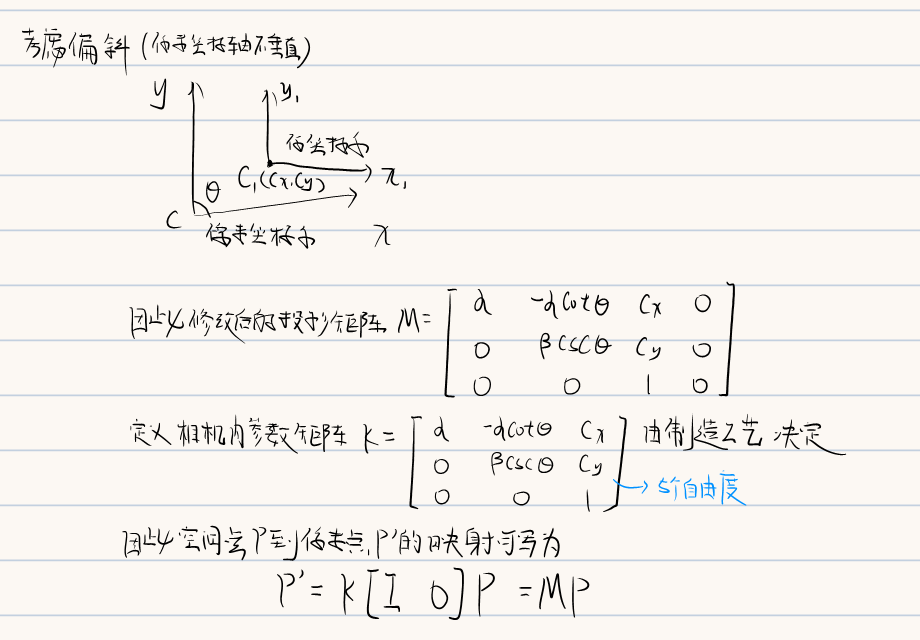 考虑偏斜(像素坐标轴不垂直)
y
y₁
像坐标系
θ
C₁(Cx,Cy)
x₁
C
像素坐标系
x
因此修改后的投影矩阵 M = [α -αcotθ Cx 0
0 βcscθ Cy 0
0 0 1 0]
定义相机内参数矩阵 K = [α -αcotθ Cx
0 βcscθ Cy
0 0 1] 由制造工艺决定
→ 5个自由度
因此空间点P到像素点P'的映射可写为
P' = K[I 0]P = MP